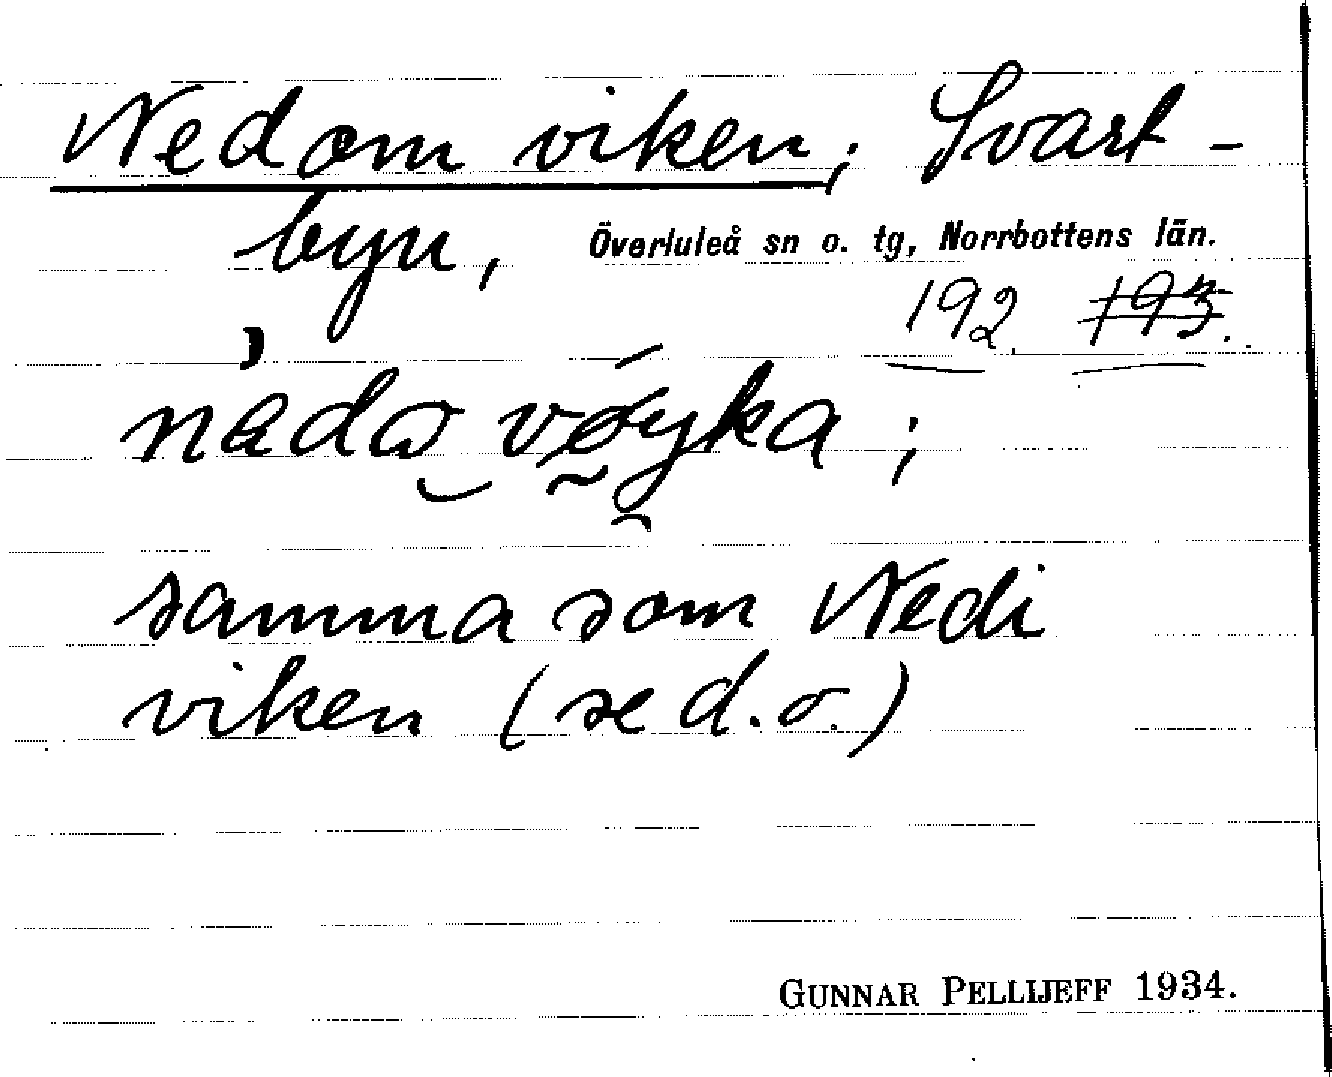 Nedom viken; Svart-
byn, Överluleå sn o. tg, Norrbottens län.
192. 193.
nada vøyka;
samma som Nedi
viken (se d.o.)
GUNNAR PELLIJEFF 1934.